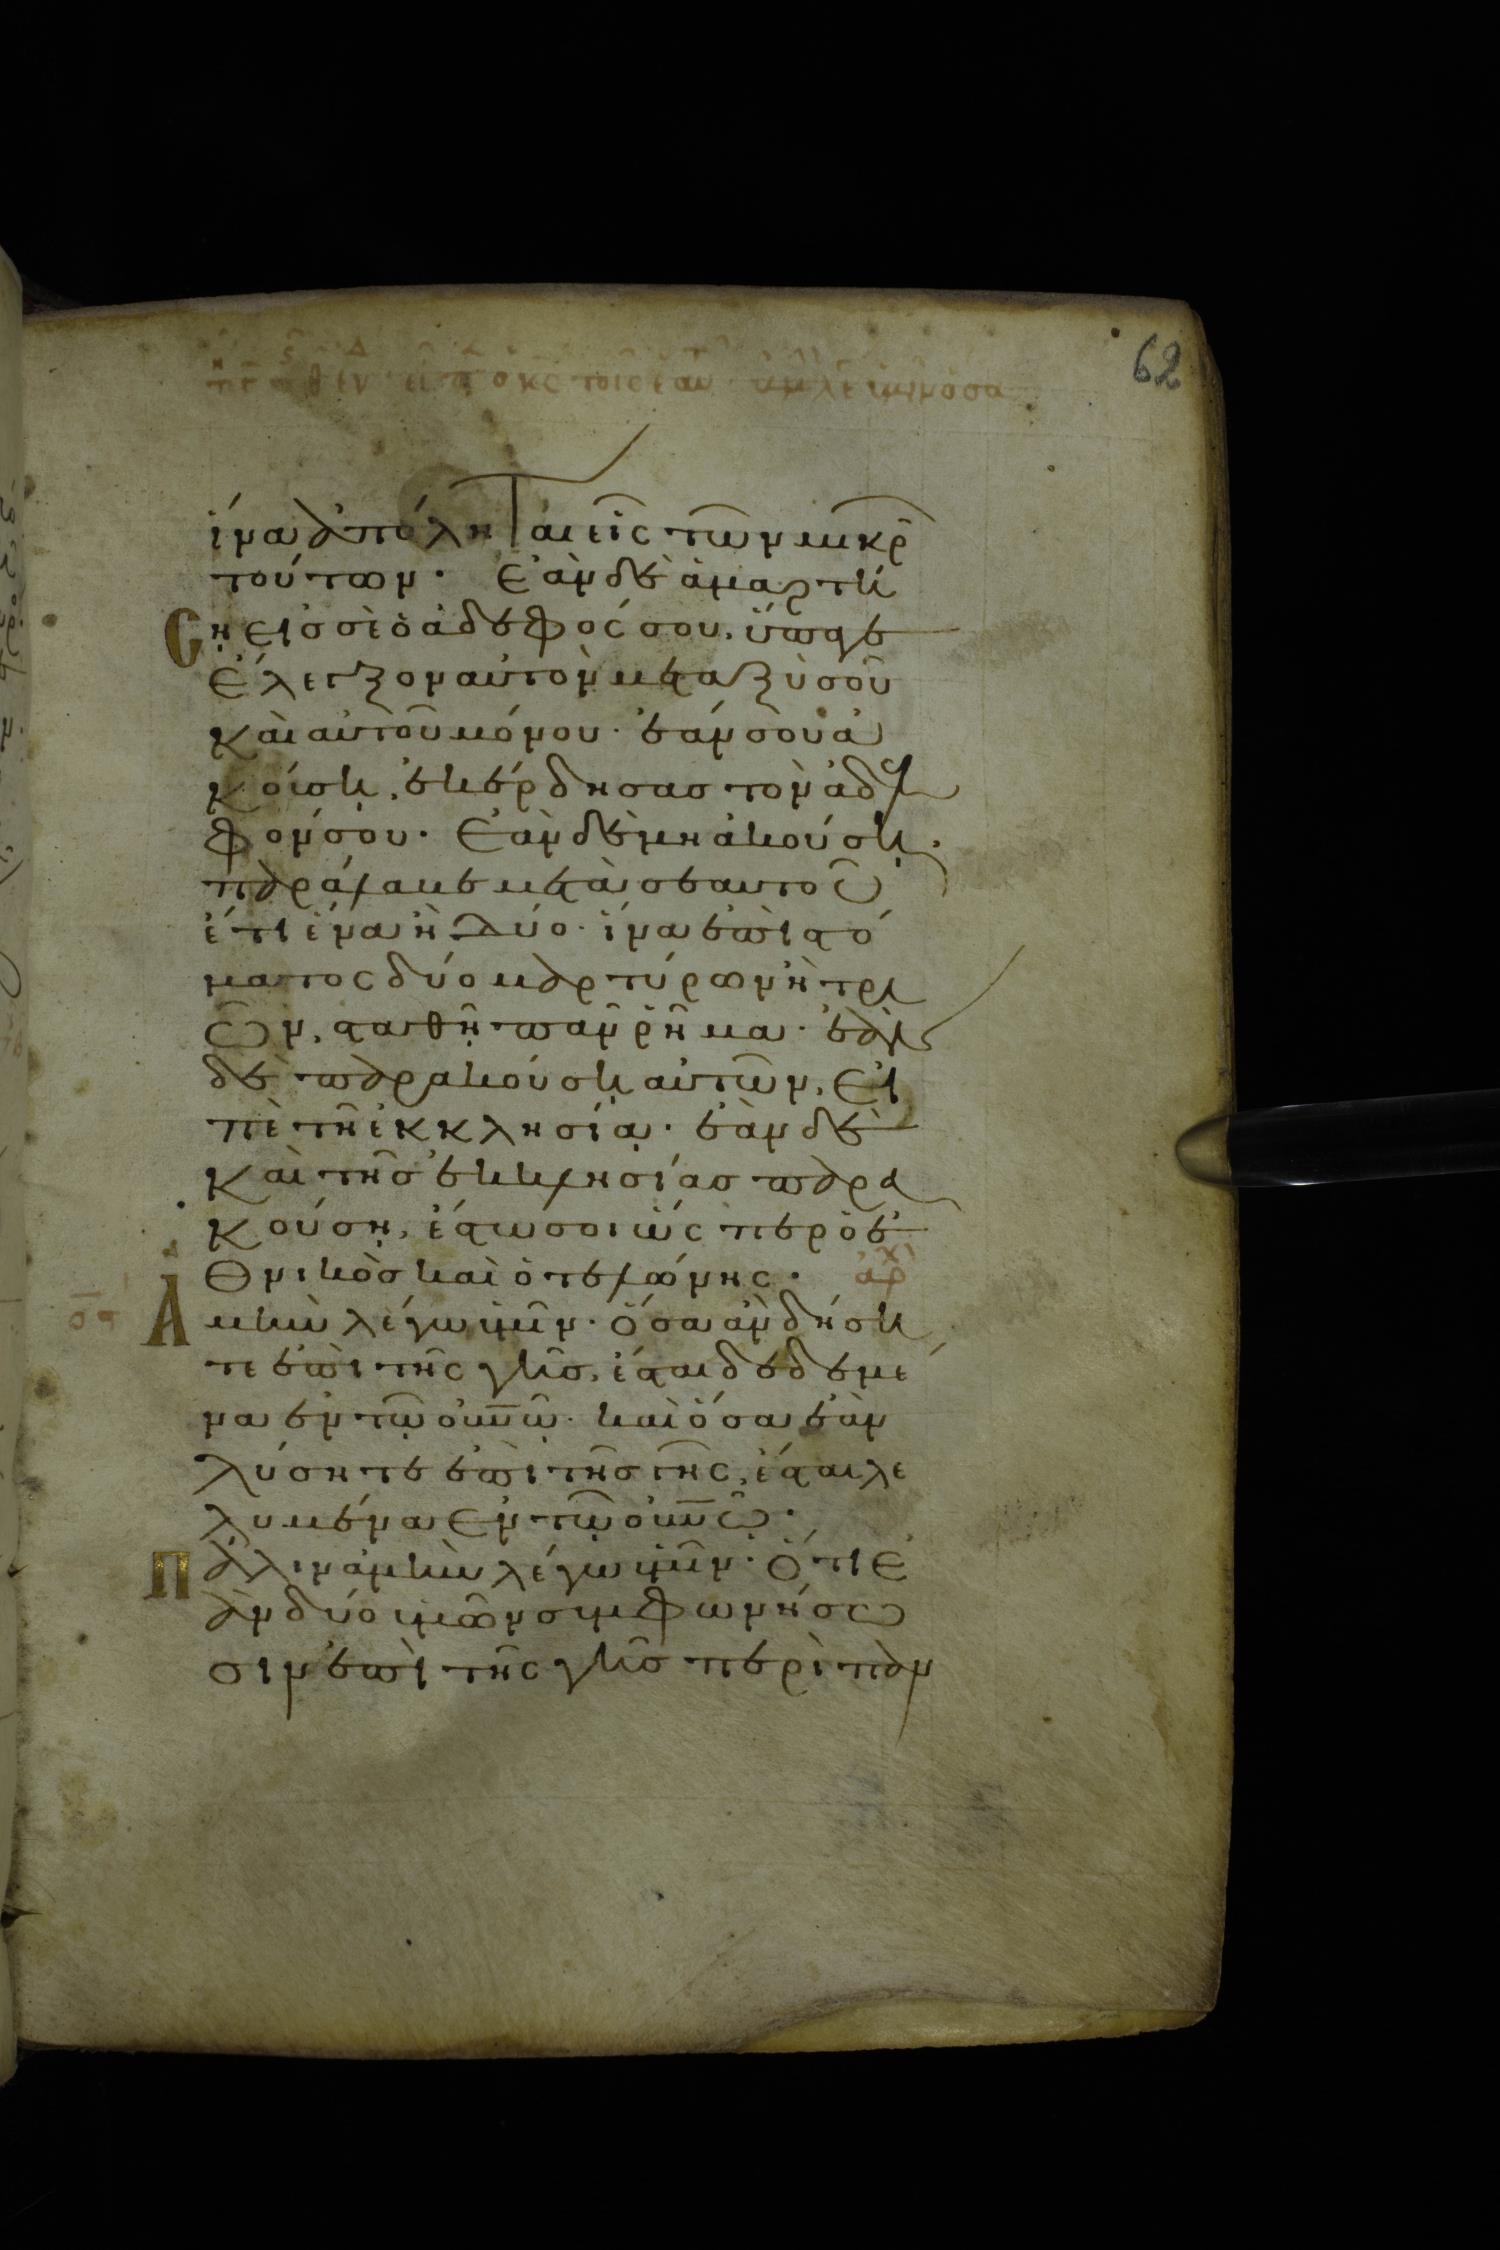 62
ἵνα ἀπόληται εἷς τῶν μικρ
τούτων· Ἐὰν δὲ ἁμαρτή
ση εἰς σὲ ὁ ἀδελφός σου, ὕπαγε
ἔλεγξον αὐτὸν μεταξὺ σοῦ
καὶ αὐτοῦ μόνου· ἐάν σου ἀ
κούση, ἐκέρδησας τὸν ἀδελ
φόν σου· Ἐὰν δὲ μὴ ἀκούση·
παράλαβε μετὰ σεαυτοῦ
ἔτι ἕνα ἢ δύο· ἵνα ἐπὶ στό
ματος δύο μαρτύρων ἢ τρι
ῶν, σταθῆ πᾶν ῥῆμα· ἐὰν
δὲ παρακούση αὐτῶν, εἰ
πὲ τῆ ἐκκλησία· ἐὰν δὲ
καὶ τῆς ἐκκλησίας παρα
κούση, ἔστω σοι ὥσπερ ὁ ἐ
θνικὸς καὶ ὁ τελώνης· ἀρχ
Ἀμὴν λέγω ὑμῖν· ὅσα ἂν δήση
τε ἐπὶ τῆς γῆς, ἔσται δεδεμέ
να ἐν τῶ οὐνῶ· καὶ ὅσα ἐὰν
λύσητε ἐπὶ τῆς γῆς, ἔσται λε
λυμένα ἐν τῶ οὐνῶ·
Πάλιν ἀμὴν λέγω ὑμῖν· ὅτι ἐ
ὰν δύο ὑμῶν συμφωνήσω
σιν ἐπὶ τῆς γῆς περὶ παν